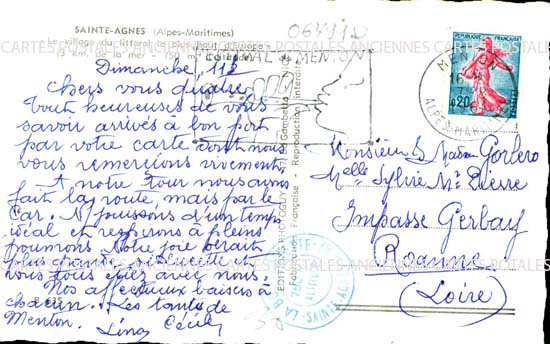 SAINTE-AGNES (Alpes-Maritimes)
Le village du littoral le plus haut d'Europe
(3 km de la mer - 750 m d'altitude)
064112
CARTES POSTALES ANCIENNES
MENTON
Dimanche, 112
Chers vous quatre
Tout heureuses de vous
savoir arrivés à bon port
par votre carte dont nous
vous remercions vivement.
A notre tour nous avons
fait la route, mais par le
car. N/ jouissons d'un temps
idéal et respirons à pleins
poumons. Notre joie serait
plus grande si Lucette et
vous tous étiez avec nous.
Nos affectueux baisers à
chacun. Les tantes de
Menton. Lina Cécile
D 635
Gambetta
Fabrication Française - Reproduction interdite
REPUBLIQUE FRANÇAISE
0,20
MENTON
16 H
ALPES-MARITIMES
Monsieur & Madame Gorbero
Melle Sylvie Mr Pierre
Impasse Gerbay
Roanne
(Loire)
SAINTE-AGNES